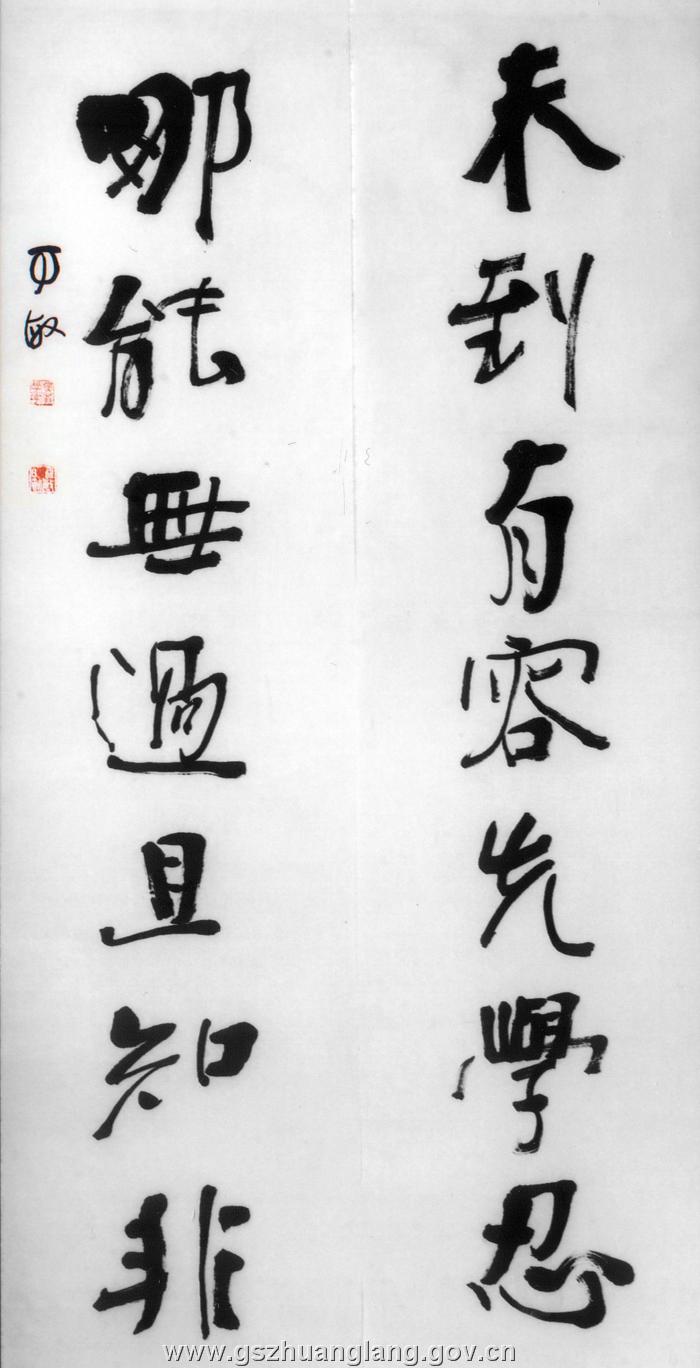 未到有容先學忍
哪能無過且知非
www.gszhuanglang.gov.cn